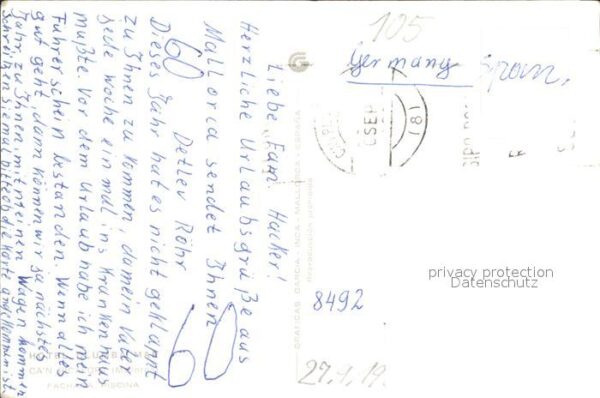 Liebe Fam. Hacker!
Herzliche Urlaubsgrüße aus
Mallorca sendet Ihnen
Detlev Röhr
Dieses Jahr hat es nicht geklappt
zu Ihnen zu kommen, da mein Vater
jede Woche einmal ins Krankenhaus
mußte. Vor dem Urlaub habe ich mein
Führerschein bestanden. Wenn alles
gut geht, dann können wir ja nächstes
Jahr zu Ihnen mit meinen Wagen kommen
Schreiben sie mal bitte ob die Karte angekommen ist
60
105
Germany Spain.
(8)
privacy protection
Datenschutz
8492
27.1.19.
GRAFICAS GARCIA - INCA - MALLORCA - ESPAÑA
PISCINA